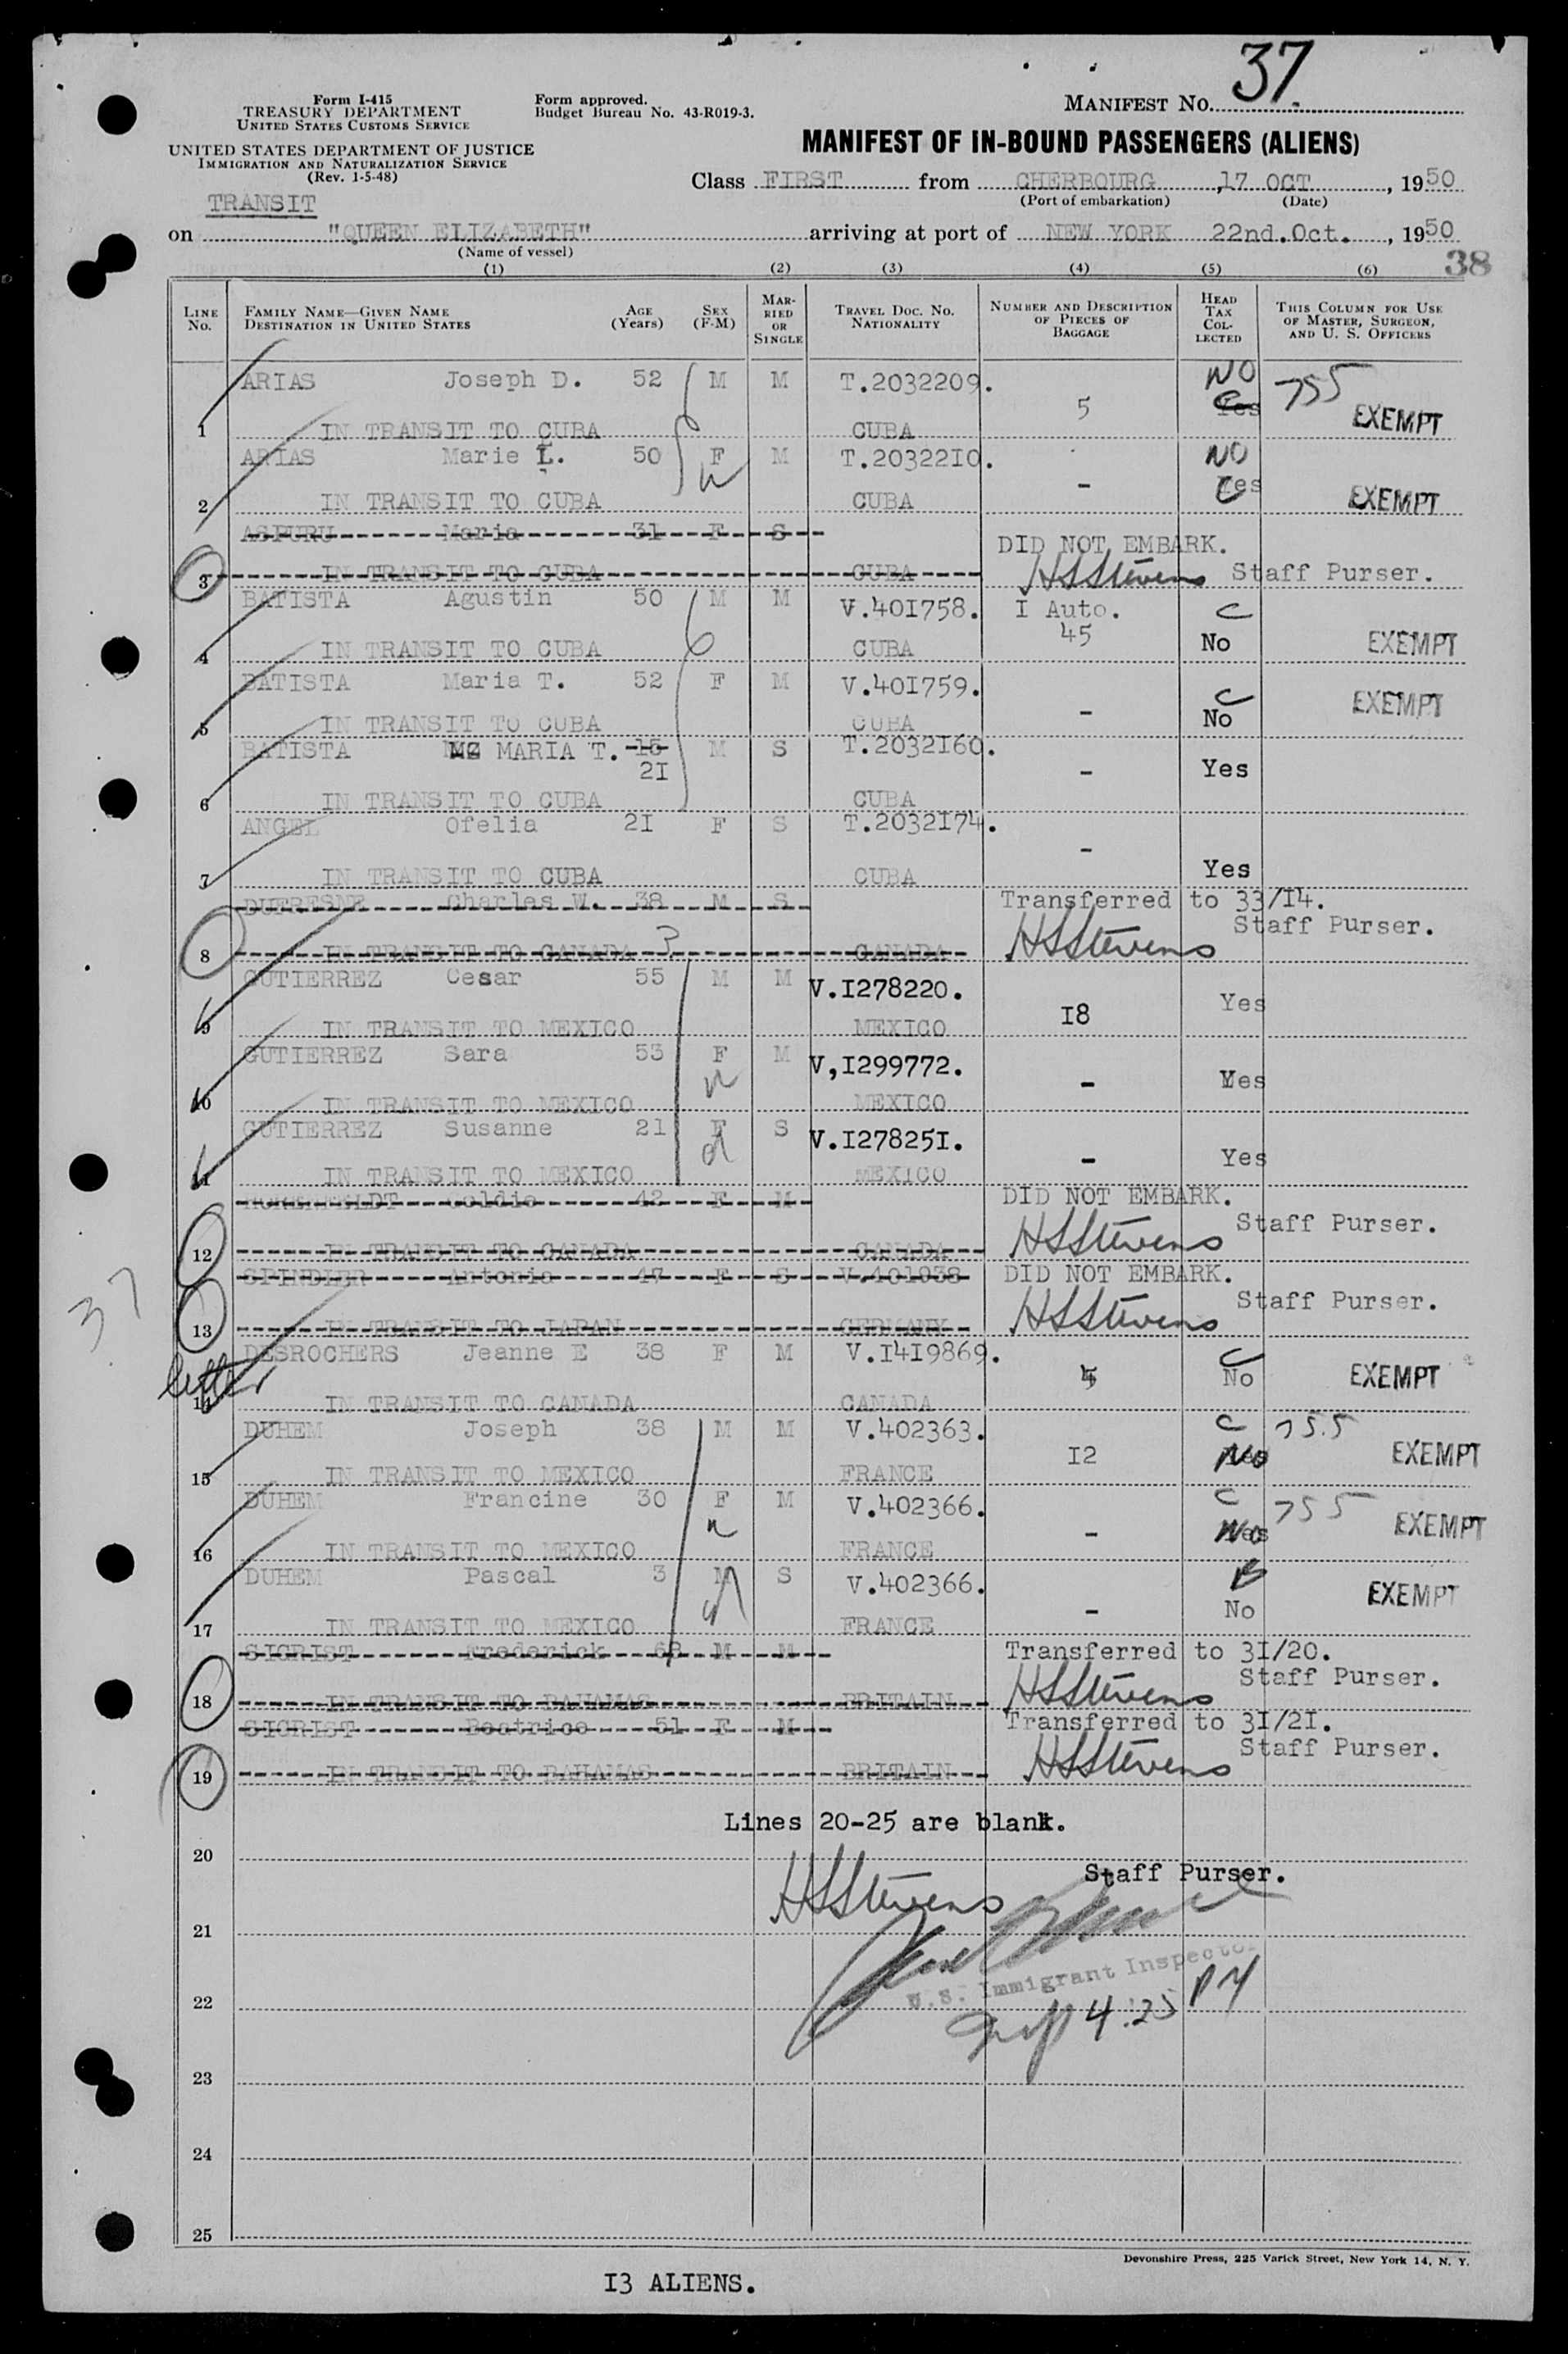 37.
Form I-415
TREASURY DEPARTMENT
UNITED STATES CUSTOMS SERVICE
UNITED STATES DEPARTMENT OF JUSTICE
IMMIGRATION AND NATURALIZATION SERVICE
(Rev. 1-5-48)
Form approved.
Budget Bureau No. 43-R019-3.
MANIFEST NO.
MANIFEST OF IN-BOUND PASSENGERS (ALIENS)
Class FIRST from CHERBOURG, 17 OCT, 1950
(Port of embarkation) (Date)
TRANSIT
on "QUEEN ELIZABETH" arriving at port of NEW YORK 22nd.Oct., 1950
(Name of vessel)
(1) (2) (3) (4) (5) (6) 38
LINE NO. FAMILY NAME—GIVEN NAME DESTINATION IN UNITED STATES AGE (YEARS) SEX (F-M) MARRIED OR SINGLE TRAVEL DOC. NO. NATIONALITY NUMBER AND DESCRIPTION OF PIECES OF BAGGAGE HEAD TAX COLLECTED THIS COLUMN FOR USE OF MASTER, SURGEON, AND U. S. OFFICERS
ARIAS Joseph D. 52 M M T.2032209. 5 NO Yes 755 EXEMPT
1 IN TRANSIT TO CUBA CUBA
ARIAS Marie L. 50 F M T.2032210. - NO Yes C
2 IN TRANSIT TO CUBA CUBA EXEMPT
ASPURU Maria 31 F S DID NOT EMBARK.
3 IN TRANSIT TO CUBA CUBA HSStevens Staff Purser.
BATISTA Agustin 50 M M V.401758. I Auto. 45 C
4 IN TRANSIT TO CUBA CUBA No EXEMPT
BATISTA Maria T. 52 F M V.401759. - C EXEMPT
5 IN TRANSIT TO CUBA CUBA No
BATISTA MARIA T. 15 21 M S T.2032160. - Yes
6 IN TRANSIT TO CUBA CUBA
ANGEL Ofelia 21 F S T.2032174. -
7 IN TRANSIT TO CUBA CUBA Yes
DUFRESNE Charles W. 38 M S Transferred to 33/14.
Staff Purser.
8 IN TRANSIT TO CANADA 3 CANADA HSStevens
GUTIERREZ Cesar 55 M M V.1278220. 18 Yes
9 IN TRANSIT TO MEXICO MEXICO
GUTIERREZ Sara 53 F M V,1299772. - Yes
10 IN TRANSIT TO MEXICO MEXICO
GUTIERREZ Susanne 21 F S V.1278251. - Yes
11 IN TRANSIT TO MEXICO MEXICO
Goldie 42 F M DID NOT EMBARK.
Staff Purser.
12 IN TRANSIT TO CANADA CANADA HSStevens
SPINDLER Antonie 47 F S V.401938 DID NOT EMBARK.
37
Staff Purser.
13 IN TRANSIT TO JAPAN GERMANY HSStevens
DESROCHERS Jeanne E 38 F M V.1419869. C No EXEMPT
letter
14 IN TRANSIT TO CANADA CANADA
DUHEM Joseph 38 M M V.402363. 12 C No 75.5 EXEMPT
15 IN TRANSIT TO MEXICO FRANCE
DUHEM Francine 30 F M V.402366. - C No 755 EXEMPT
16 IN TRANSIT TO MEXICO FRANCE
DUHEM Pascal 3 M S V.402366. - No EXEMPT
17 IN TRANSIT TO MEXICO FRANCE
SIGRIST Frederick 68 M M Transferred to 31/20.
Staff Purser.
18 IN TRANSIT TO BAHAMAS BRITAIN HSStevens
SIGRIST Beatrice 51 F M Transferred to 31/21.
Staff Purser.
19 IN TRANSIT TO BAHAMAS BRITAIN HSStevens
Lines 20-25 are blank.
20
HSStevens Staff Purser.
21
U.S. Immigrant Inspector
22
4:25 PM
23
24
25
Devonshire Press, 225 Varick Street, New York 14, N. Y.
I3 ALIENS.